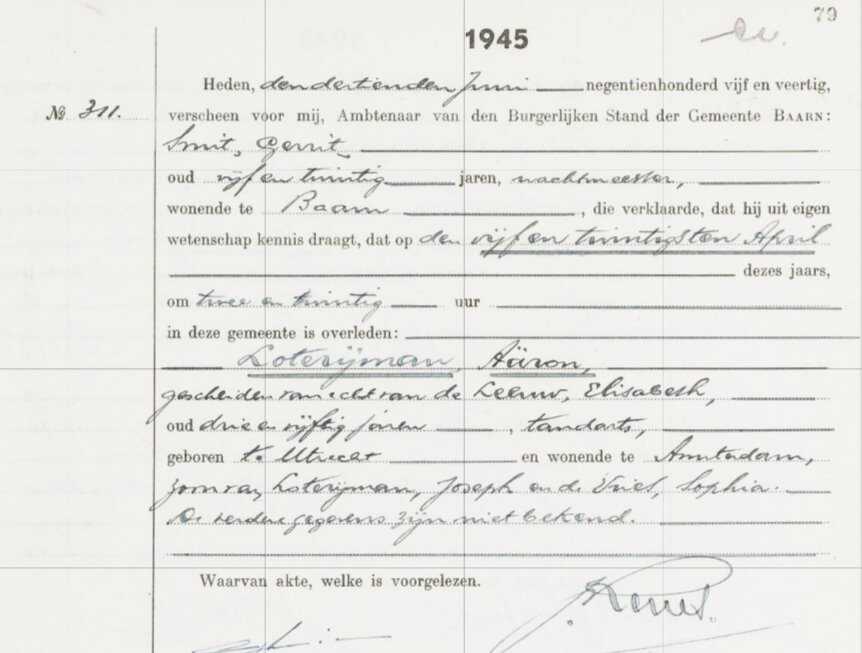 79
1945
Heden, den dertienden Juni negentienhonderd vijf en veertig,
№ 311. verscheen voor mij, Ambtenaar van den Burgerlijken Stand der Gemeente BAARN:
Smit, Gerrit,
oud vijf en twintig jaren, wachtmeester,
wonende te Baarn, die verklaarde, dat hij uit eigen
wetenschap kennis draagt, dat op den vijf en twintigsten April
dezes jaars,
om twee en twintig uur
in deze gemeente is overleden:
Loterijman, Aäron,
gescheiden van echt van de Leeuw, Elisabeth,
oud drie en vijftig jaren, tandarts,
geboren te Utrecht en wonende te Amsterdam,
zoon van Loterijman, Joseph en de Vries, Sophia.
De verdere gegevens zijn niet bekend.
Waarvan akte, welke is voorgelezen.